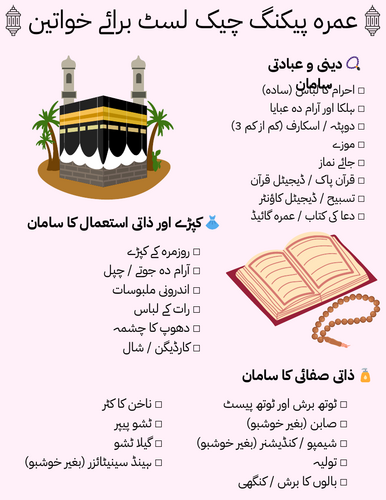 عمرہ پیکنگ چیک لسٹ برائے خواتین
دینی و عبادتی
سامان
□ احرام کا لباس (سادہ)
□ ہلکا اور آرام دہ عبایا
□ دوپٹہ / اسکارف (کم از کم 3)
□ موزے
□ جائے نماز
□ قرآن پاک / ڈیجیٹل قرآن
□ تسبیح / ڈیجیٹل کاؤنٹر
□ دعا کی کتاب / عمرہ گائیڈ
کپڑے اور ذاتی استعمال کا سامان
□ روزمرہ کے کپڑے
□ آرام دہ جوتے / چپل
□ اندرونی ملبوسات
□ رات کے لباس
□ دھوپ کا چشمہ
□ کارڈیگن / شال
ذاتی صفائی کا سامان
□ ٹوتھ برش اور ٹوتھ پیسٹ
□ صابن (بغیر خوشبو)
□ شیمپو / کنڈیشنر (بغیر خوشبو)
□ تولیہ
□ بالوں کا برش / کنگھی
□ ناخن کا کٹر
□ ٹشو پیپر
□ گیلا ٹشو
□ ہینڈ سینیٹائزر (بغیر خوشبو)